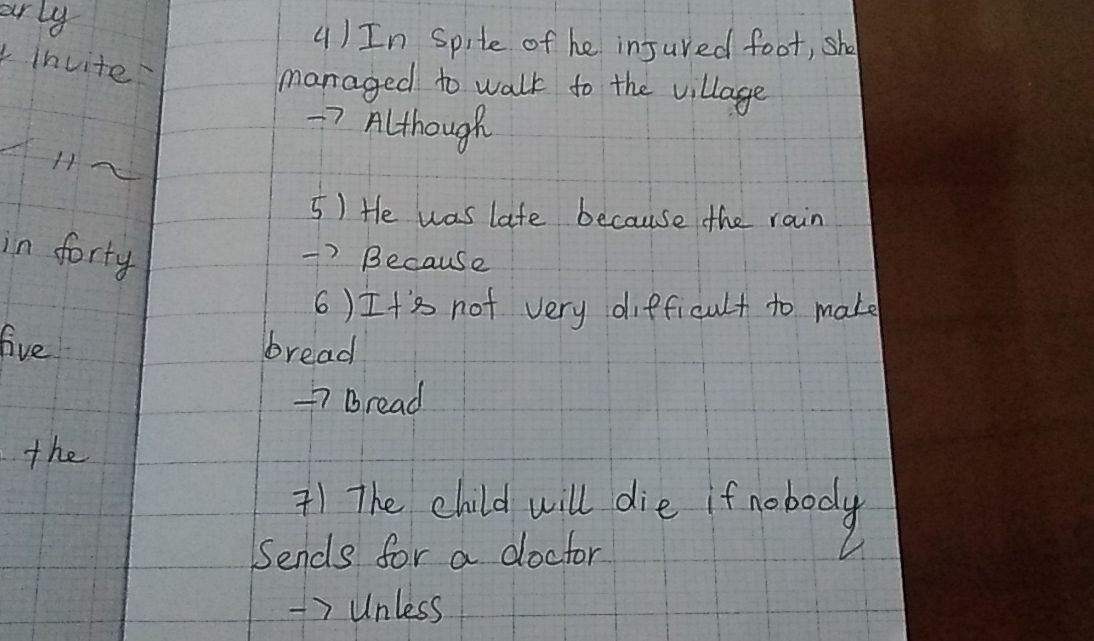 arly
invite
"
in forty
five
the
4) In spite of he injured foot, she
managed to walk to the village
-> Although
5) He was late because the rain
-> Because
6) It's not very difficult to make
bread
-> Bread
7) The child will die if nobody
sends for a doctor
-> Unless